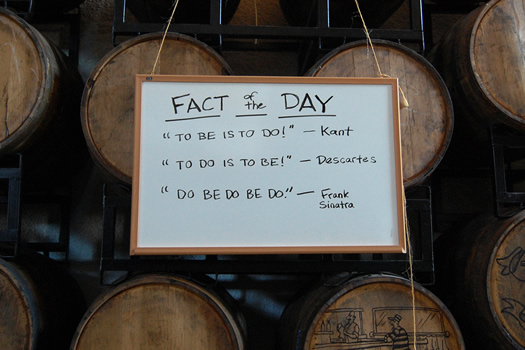 FACT of the DAY
"TO BE IS TO DO!" — Kant
"TO DO IS TO BE!" — Descartes
"DO BE DO BE DO." — Frank
Sinatra